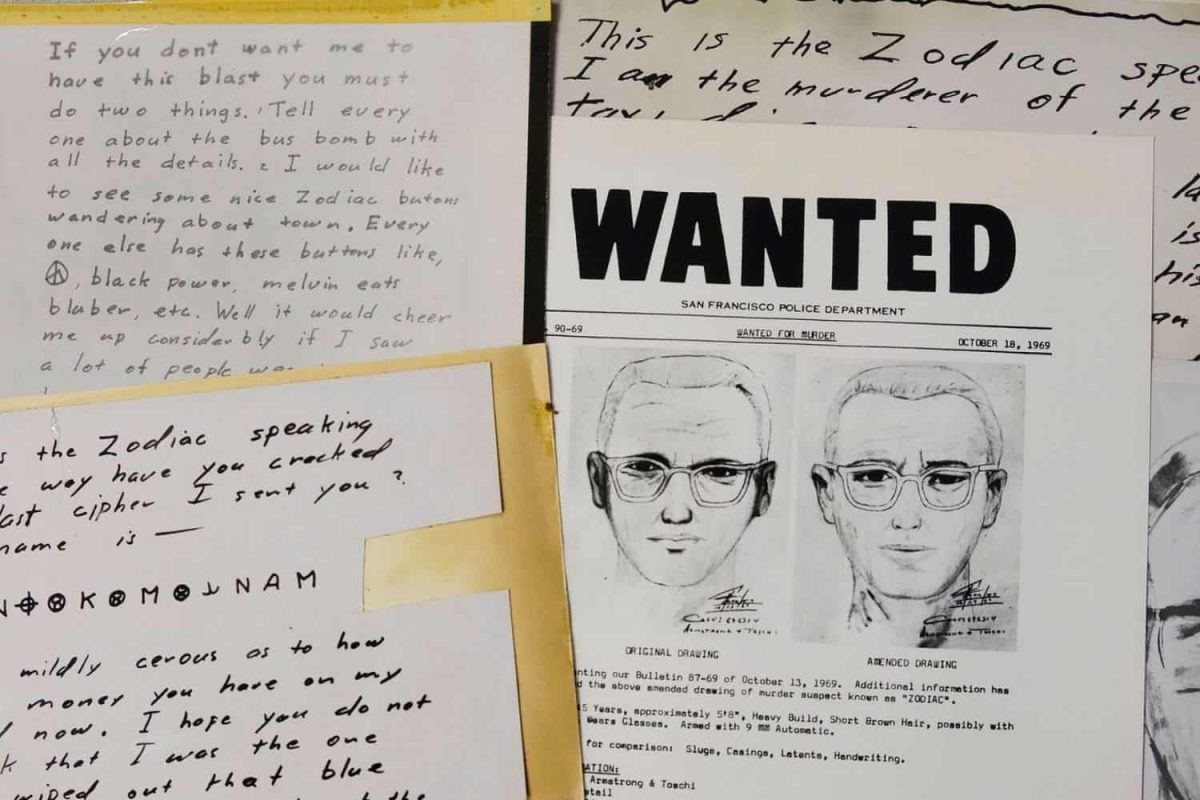 If you dont want me to
have this blast you must
do two things. Tell every
one about the bus bomb with
all the details. 2 I would like
to see some nice Zodiac butons
wandering about town. Every
one else has these buttons like,
☮, black power, melvin eats
bluber, etc. Well it would cheer
me up considerbly if I saw
a lot of people
the Zodiac speaking
way have you cracked
last cipher I sent you ?
name is —
N⌖⊗K⊗M⊗NAM
mildly cerous as to how
money you have on my
now. I hope you do not
that I was the one
wiped out that blue
the
This is the Zodiac
I am the murderer of the
is
WANTED
SAN FRANCISCO POLICE DEPARTMENT
90-69 WANTED FOR MURDER OCTOBER 18, 1969
ORIGINAL DRAWING AMENDED DRAWING
our Bulletin 87-69 of October 13, 1969. Additional information has
the above amended drawing of murder suspect known as "ZODIAC".
5 Years, approximately 5'8", Heavy Build, Short Brown Hair, possibly with
Wears Glasses. Armed with 9 MM Automatic.
for comparison: Slugs, Casings, Latents, Handwriting.
Armstrong & Toschi